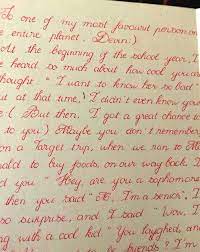 To one of my most favourit person on
e entire planet, Devin:)
At the beginning of the school year, I
e heard so much about how cool you are
thought: " I want to know her so bad
ut at that time, I didn't even know your
e ( But then, I got a great chance to
to you) Maybe you don't remember
on a Target trip, when we ran to Mc
nald to buy foods, on our way back, I
d you " Hey, are you a sophomore
then you said " , I'm a senior",
so surprise, and I said " Wow, I
ng with a cool kid " You laughed, an
be friends ? I'm